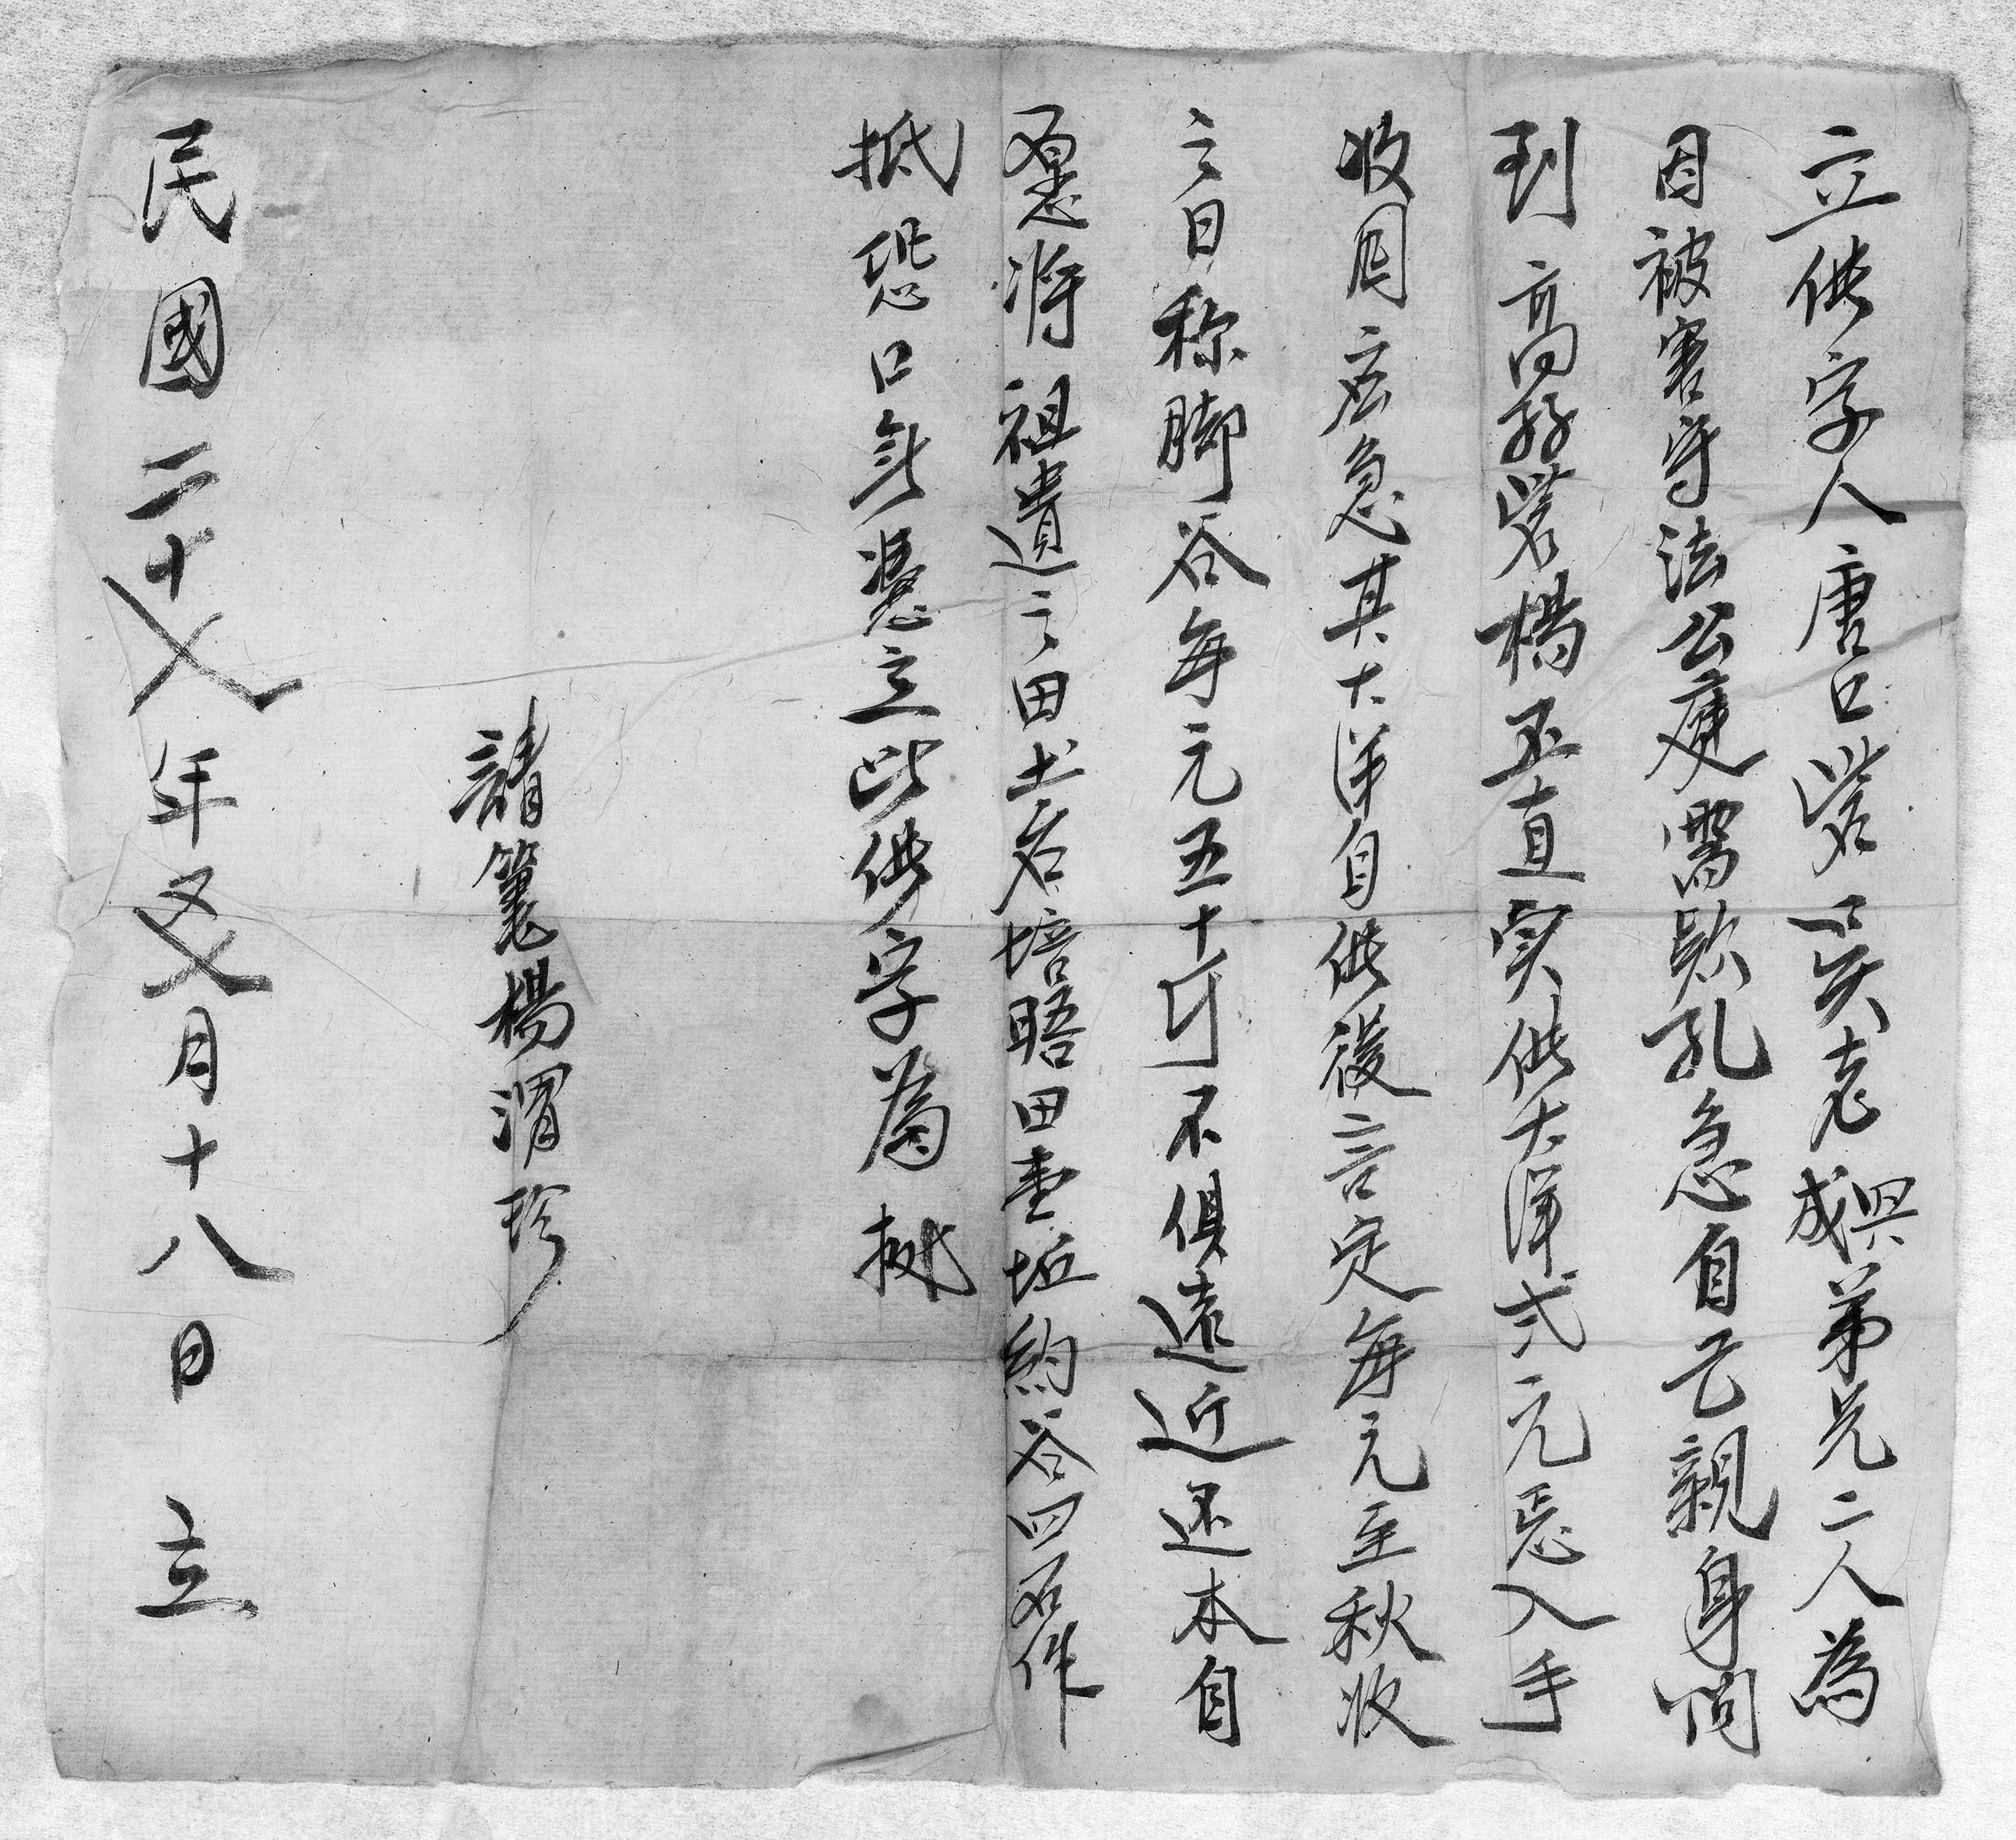 立供字人唐口砦吴老成興弟兄二人為
因被害守法公廋需欵孔急自己親身問
到高孖砦楊玉直实供大洋弍元忘入手
收用应急其大洋自供後言定每元至秋收
之日称脚谷每元五十斤不俱遠近还本自
愿将祖遺之田土名培晤田壹坵約谷四石作
抵恐口無憑立此供字為執
請筆楊渭珍
民國二十八年又又月十八日立